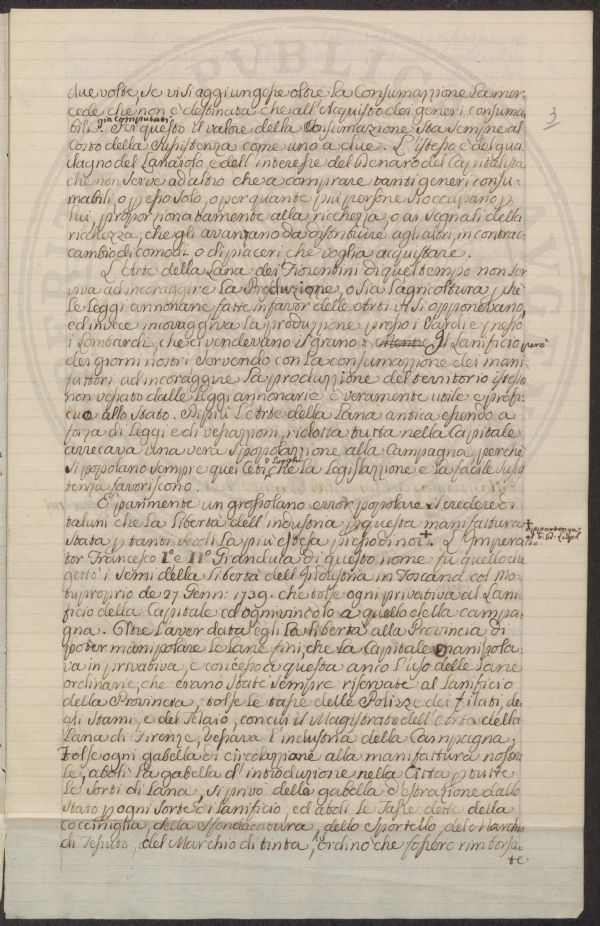 3
due volte, se vi si aggiungesse oltre la Consumazzione la mer-
cede che non è destinata che all'Acquisto dei generi consuma-
già computati
bili. Per questo il valore della Consumazione sta sempre al
Costo della Sussistenza come uno a due. L'istesso è del gua
dagno del Lanaiolo e dell'interesse del Denaro del Capitalista
che non serve ad altro che a comprare tanti generi consu-
mabili, o p esso solo, o per quante più persone si occupano p
lui, proporzionatamente alla ricchezza, o ai segnali della
ricchezza, che gli avanzano da distribuire agli altri, in contrac-
cambio di comodi, o di piaceri che voglia acquistare.
L'Arte della Lana dei Fiorentini di quel tempo non ser
viva ad incoraggire la Produzione, o sia l'agricoltura, pchè
le Leggi annonarie fatte in favor delle Arti vi si opponevano,
ed invece incoraggiva la produzzione presso i Sardi e presso
i Lombardi, che ci vendevano il grano: Il Lanificio però
dei giorni nostri servendo con la consumazzione dei mani-
fattori ad incoraggire la produzzione del territorio istesso
non vessato dalle Leggi annonarie è veramente utile e profi-
cuo allo Stato. Di più L'Arte della Lana antica essendo a
forza di Leggi e di vessazzioni, ridotta tutta nella Capitale
arrecava una vera spopolazzione alla Campagna, perchè
si popolano sempre quei Ceti, o Luoghi che la Legislazzione e la facile sussis
tenza favoriscono.
È parimente un grossolano error popolare il credere di
taluni che la libertà dell'industria p questa manifattura
stata p tanti secoli la più estesa presso di noi +. L'Impera
+ appartenga
al G. D. Leopol
do
tor Francesco I.º e II.º Granduca di questo nome fù quello che
gettò i semi della libertà dell'Industria in Toscana col Mo-
tuproprio de 27 Genn: 1739. che tolse ogni privativa al Lani
ficio della Capitale ed ogni vincolo a quello della campa-
gna. Oltre l'aver data egli la libertà alla Provincia di
poter manipolare le Lane fini, che la Capitale manipola-
va in privativa, e concesso a questa anco l'uso delle Lane
ordinarie, che erano state sempre riservate al Lanificio
della Provincia, tolse le tasse delle Polizze dei filati, de
gli Stami, e del Telaio, con cui il Magistrato dell'Arte della
Lana di Firenze, vessava l'industria della Campagna;
Tolse ogni gabella di circolazzione alla manifattura nostra
le, abolì la gabella d'introduzione nella Città p tutte
le sorti di Lana, si privò della gabella d'estrazione dallo
Stato p ogni sorte di Lanificio, ed abolì le Tasse dette della
Cocciniglia, della Sfondacatura, dello Sportello, del Marchio
di Tessuto, del Marchio di tinta, ordinò che fossero rimborsa-
te